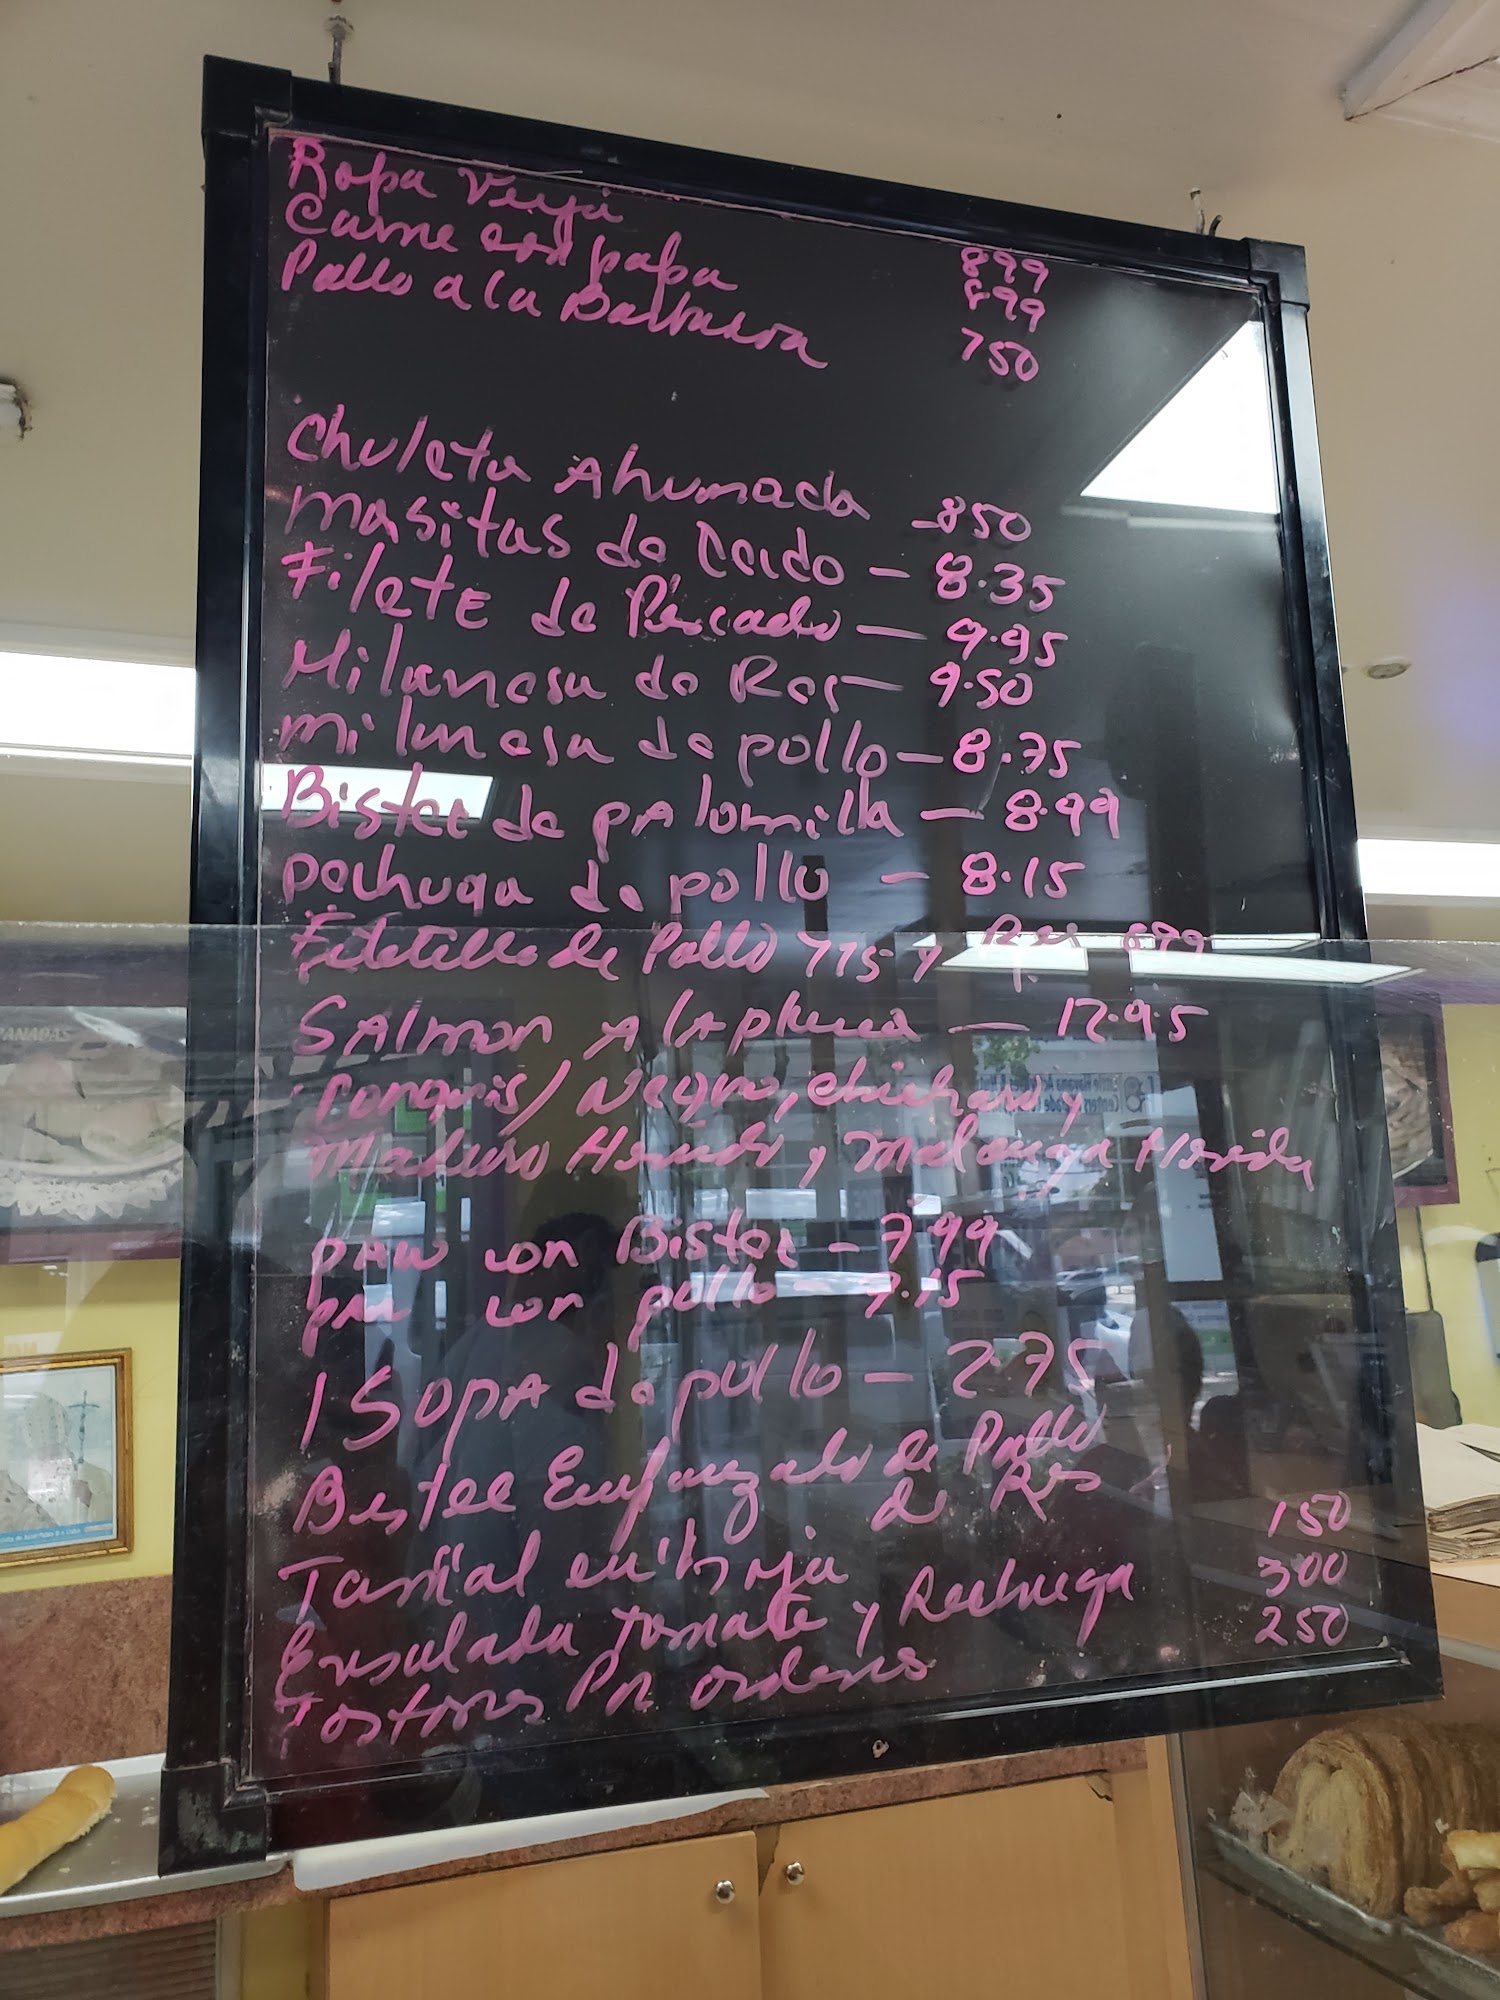 Ropa Vieja
Carne con papa 899
Pollo a la Barbacoa 899
750
Chuleta Ahumada - 850
Masitas de Cerdo - 8.35
FiletE de Pescado - 9.95
Milanesa de Res - 9.50
milanesa de pollo - 8.75
Bistec de pAlomilla - 8.99
pechuga de pollo - 8.15
Filetillo de Pollo 775 y Res 899
SAlmon A lA plancha - 12.95
Congris/ Negro, chicharo y
Maduro Hervido y Malanga Hervida
pAN con Bistec - 7.99
pAN con pollo - 7.15
1 SOPA de pollo - 2.75
Bistee Empanizado de Pollo
de Res
Tamal en hoja 150
Ensalada tomate y Lechuga 300
Tostones Por ordenes 250